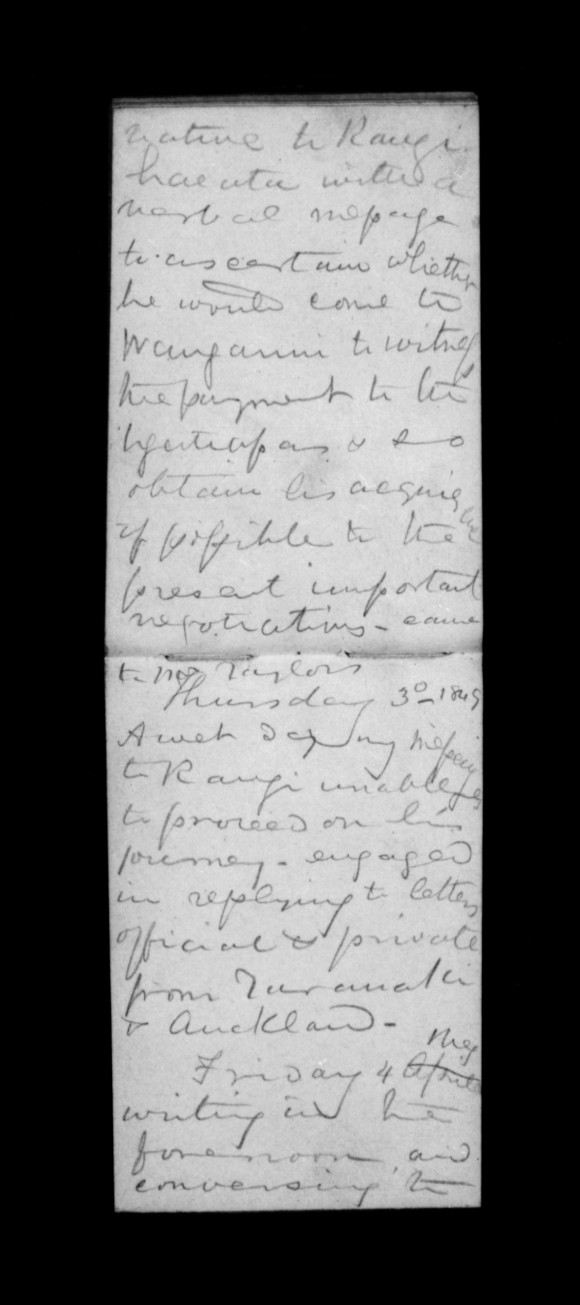 native to Rangi
haeata with a
verbal message
to ascertain whether
he would come to
Wanganui to witness
the payment to the
Ngatiapas & so
obtain his acquies
if possible to the
present important
negotiations - came
to Mr Taylors
Thursday 3d 1849
A wet day my messenger
to Rangi unable
to proceed on his
journey - engaged
in replying to letters
official & private
from Taranaki
& Auckland -
Friday 4 April May
writing in the
forenoon and
conversing to